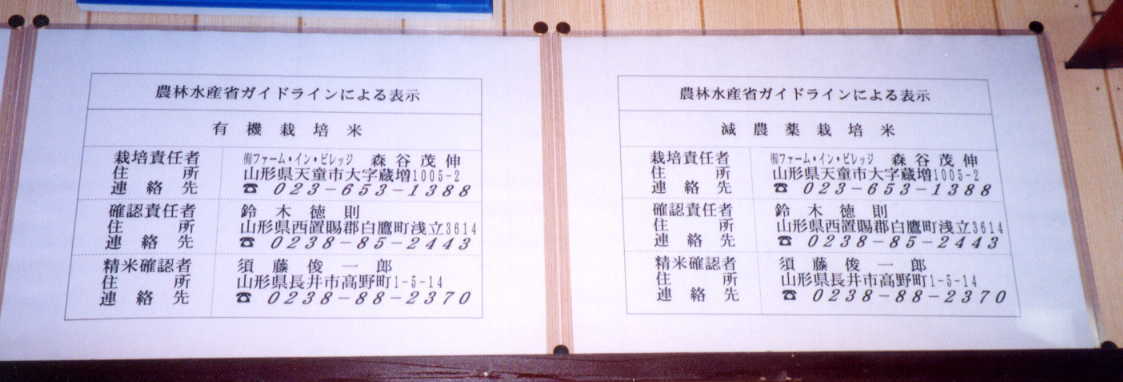 農林水産省ガイドラインによる表示
有機栽培米
栽培責任者 ㈲ファーム・イン・ビレッジ 森谷茂伸
住所 山形県天童市大字蔵増1005-2
連絡先 ☎ 023-653-1388
確認責任者 鈴木徳則
住所 山形県西置賜郡白鷹町浅立3614
連絡先 ☎ 0238-85-2443
精米確認者 須藤俊一郎
住所 山形県長井市高野町1-5-14
連絡先 ☎ 0238-88-2370
農林水産省ガイドラインによる表示
減農薬栽培米
栽培責任者 ㈲ファーム・イン・ビレッジ 森谷茂伸
住所 山形県天童市大字蔵増1005-2
連絡先 ☎ 023-653-1388
確認責任者 鈴木徳則
住所 山形県西置賜郡白鷹町浅立3614
連絡先 ☎ 0238-85-2443
精米確認者 須藤俊一郎
住所 山形県長井市高野町1-5-14
連絡先 ☎ 0238-88-2370